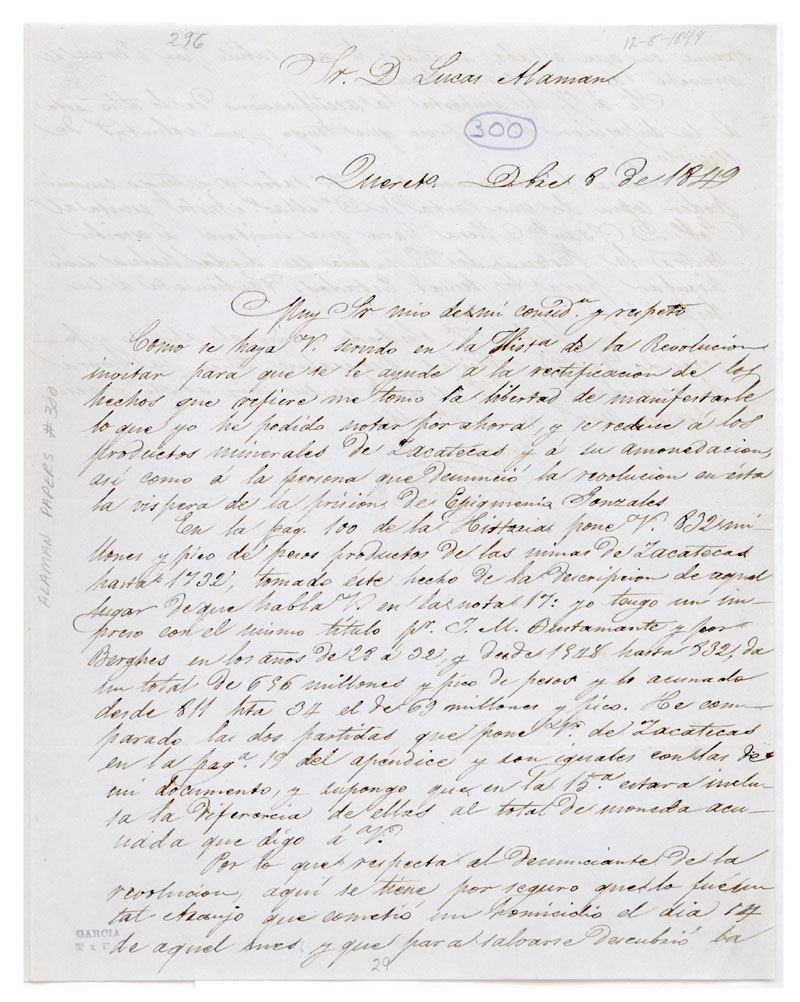 296
12-8-1849
Sr. D Lucas Alaman
300
Queret.o Dbre 8 de 1849
Muy Sr mio de mi consid.n y respeto
Como se haya V. servido en la Hist.a de la Revolucion
invitar para que se le ayude á la rectificacion de los
hechos que refiere me tomo la libertad de manifestarle
lo que yo he podido notar por ahora, y se reduce á los
productos minerales de Zacatecas y á su amonedacion,
así como á la persona que denunció la revolucion en ésta
la vispera de la prision de Epigmenio Gonzales
En la pag. 100 de la Historia pone V. 832 mi-
llones y pico de pesos productos de las minas de Zacatecas
hasta 1732, tomado este hecho de la descripcion de aquel
lugar de que habla V. en la nota 17: yo tengo un im-
preso con el mismo titulo p.r J. M. Bustamante y por
Berghes en los años de 28 á 32, y desde 1548 hasta 832, da
un total de 656 millones y pico de pesos y lo acuñado
desde 811 hta 34 el de 69 millones y pico. He com-
parado las dos partidas que pone V. de Zacatecas
en la pag.a 19 del apéndice y son iguales con las de
mi documento, y supongo que en la 15.a estara inclu-
sa la diferencia de ellas al total de moneda acu-
ñada que digo á V.
Por lo que respecta al denunciante de la
revolucion, aquí se tiene por seguro que lo fué un
tal Araujo que cometió un homicidio el dia 14
de aquel mes y que para salvarse descubrió la
ALAMAN PAPERS #300
GARCIA
T x U
29